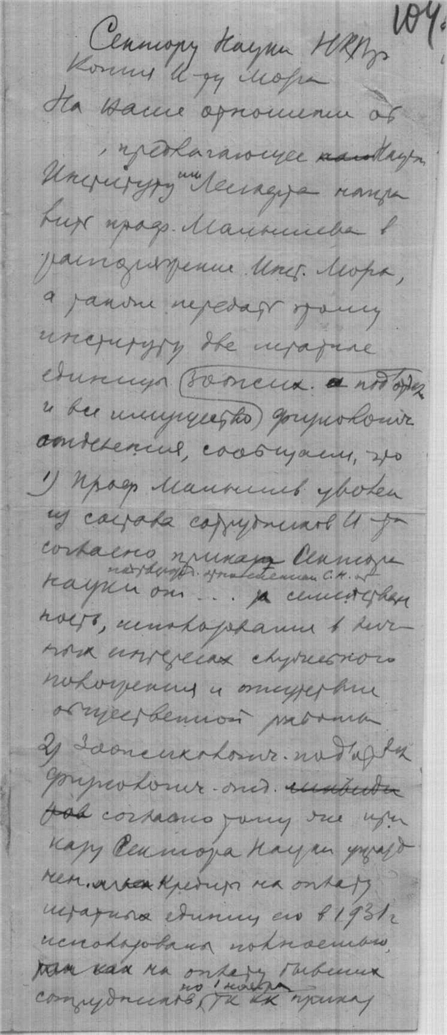 104
Сектору Науки НКПр
Копия И-ту Мозга
На Ваше отношение от
, предлагающее Научн
Институту им Лесгафта напра
вить проф. Малышева в
распоряжение Инст. Мозга,
а также передать этому
институту две штатные
единицы Зоопсих. подотдела
и все имущество физиологич
отделения, сообщаем, что
1) Проф Малышев уволен
из состава сотрудников И-та
согласно приказу Сектора
науки от ... за семействен
ность, использование в лич-
ных интересах служебного
положения и отсутствие
общественной работы
2) Зоопсихологич. подотд
физиологич. отд.
согласно тому же при
казу Сектора Науки упразд
нен. Кредиты на оплату
штатных единиц его в 1931 г
использованы полностью,
так как на оплату бывших
сотрудников, по 1 ноября
т.к. приказ